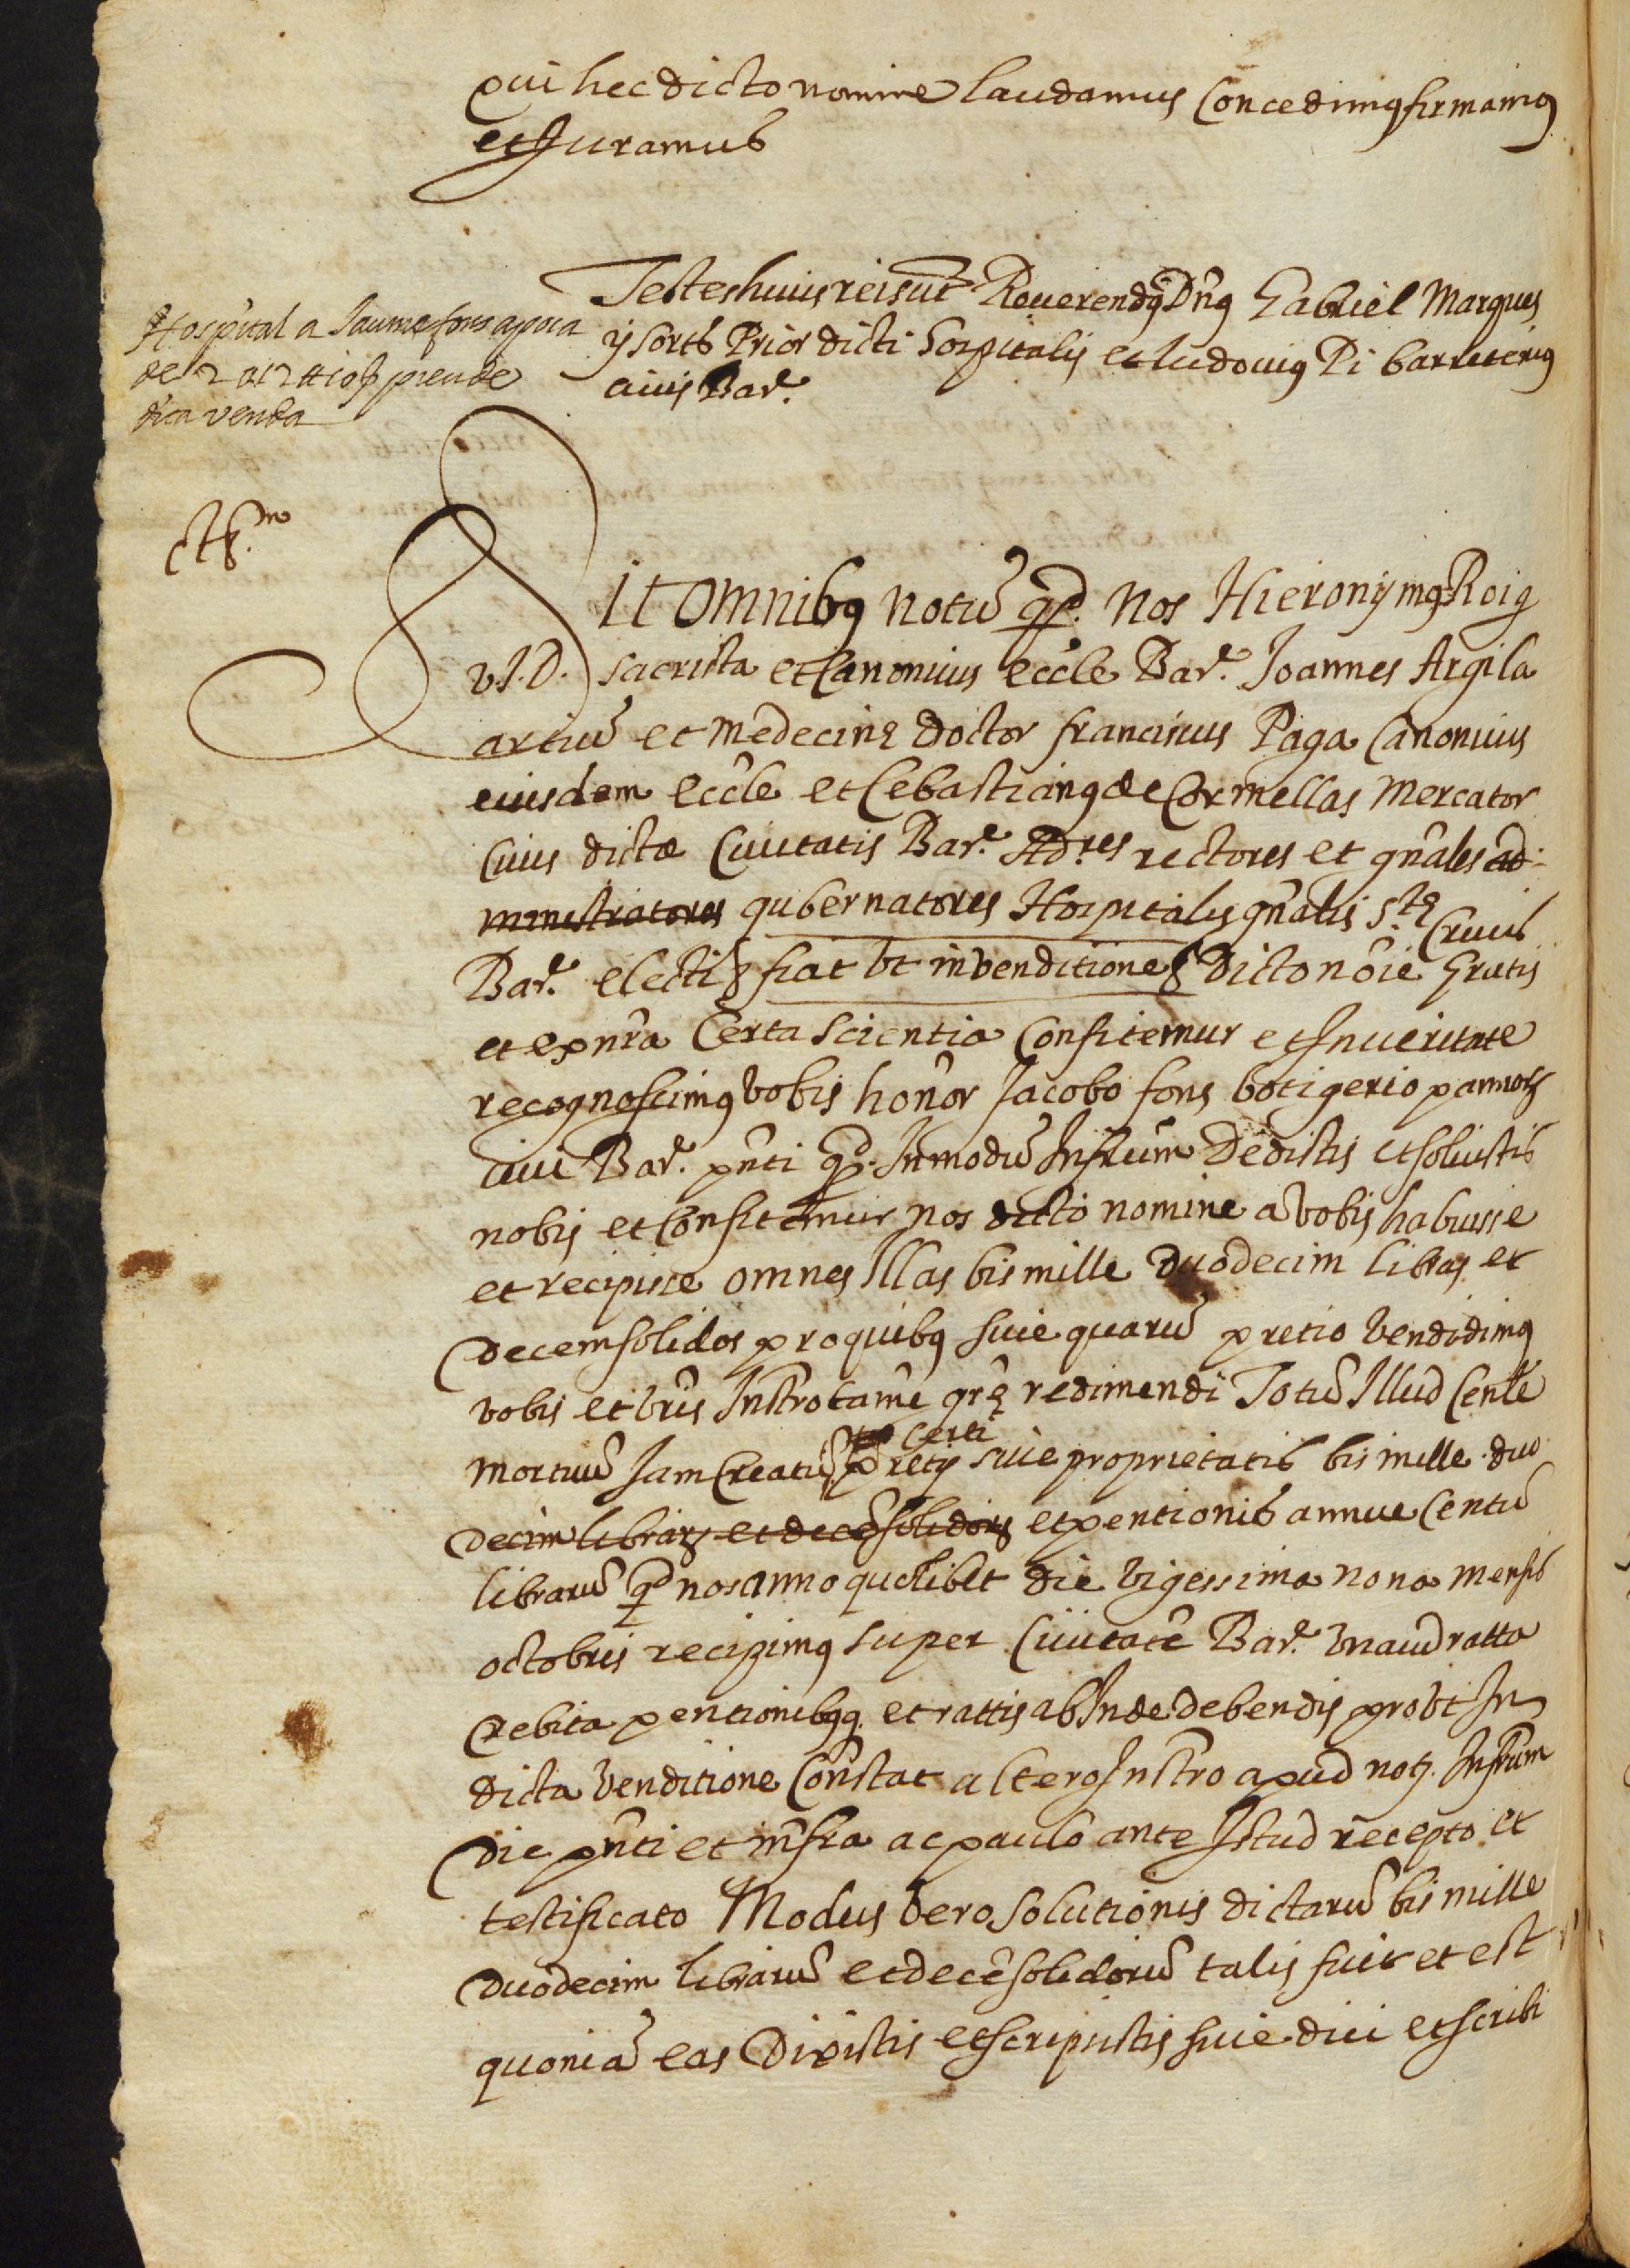 qui hec dicto nomine laudamus Concedimꝰ firmamꝰ
et Juramus
Testes huius rei sūt Reuerendꝰ Dn̄s Gabriel Marques
ysorts Prior dicti hospitalis et ludouicꝰ Pi barreterius
ciuis Barᵉ.
Hospital a Jaume fons apoca
de 2012 ₶ 10 ß preu de
dita venda
Sit omnibꝰ notū qd. Nos Hieronymꝰ Roig
v.J.D. sacrista et Canonicus eccle Barᵉ. Joannes Argila
artiū et medecine doctor franciscus Paga Canonicus
eiusdem eccle et Sebastianꝰ de Cormellas mercator
Ciuis dictæ Ciuitatis Barᵉ. Adres rectores et gn̄ales ad-
ministratores gubernatores Hospitalis gn̄alis Ste Crucis
Barᵉ. electi ß fiat vt in venditione ß dicto nōie Gratis
et ex nr̄a Certa scientia Confitemur et Inueritate
recognoscimꝰ vobis honor Jacobo fons botigerio pannorꝝ
ciui Barᵉ. pn̄ti qd. In modū Infrūm Dedistis et soluistis
nobis et Confitemur nos dicto nomine a vobis habuisse
et recipisse omnes Illas bis mille duodecim libras et
decem solidos pro quibꝰ siue quarū pretio vendidimꝰ
vobis et vrīs Instro tamē gre redimendi Totū Illud Censle
mortuū Jam Creatū certi pretij siue proprietatis bis mille duo
decim librarꝝ et decē solidorꝝ et pentionis annue Centū
librarū qd nos anno quolibet die vigessima nona mensis
octobris recipimꝰ super Ciuitatē Barᵉ. vnacū ratta
debita pentionibꝰqꝫ et rattis ab Inde debendis provt In
dicta venditione Constat altero Instro apud notꝫ. Infrūm
die pn̄ti et infra ac paulo ante Istud recepto et
testificato Modus vero solutionis dictarū bis mille
duodecim librarū et decē solidorū talis fuit et est
quoniā eas Dixistis et scripsistis siue dici et scribi